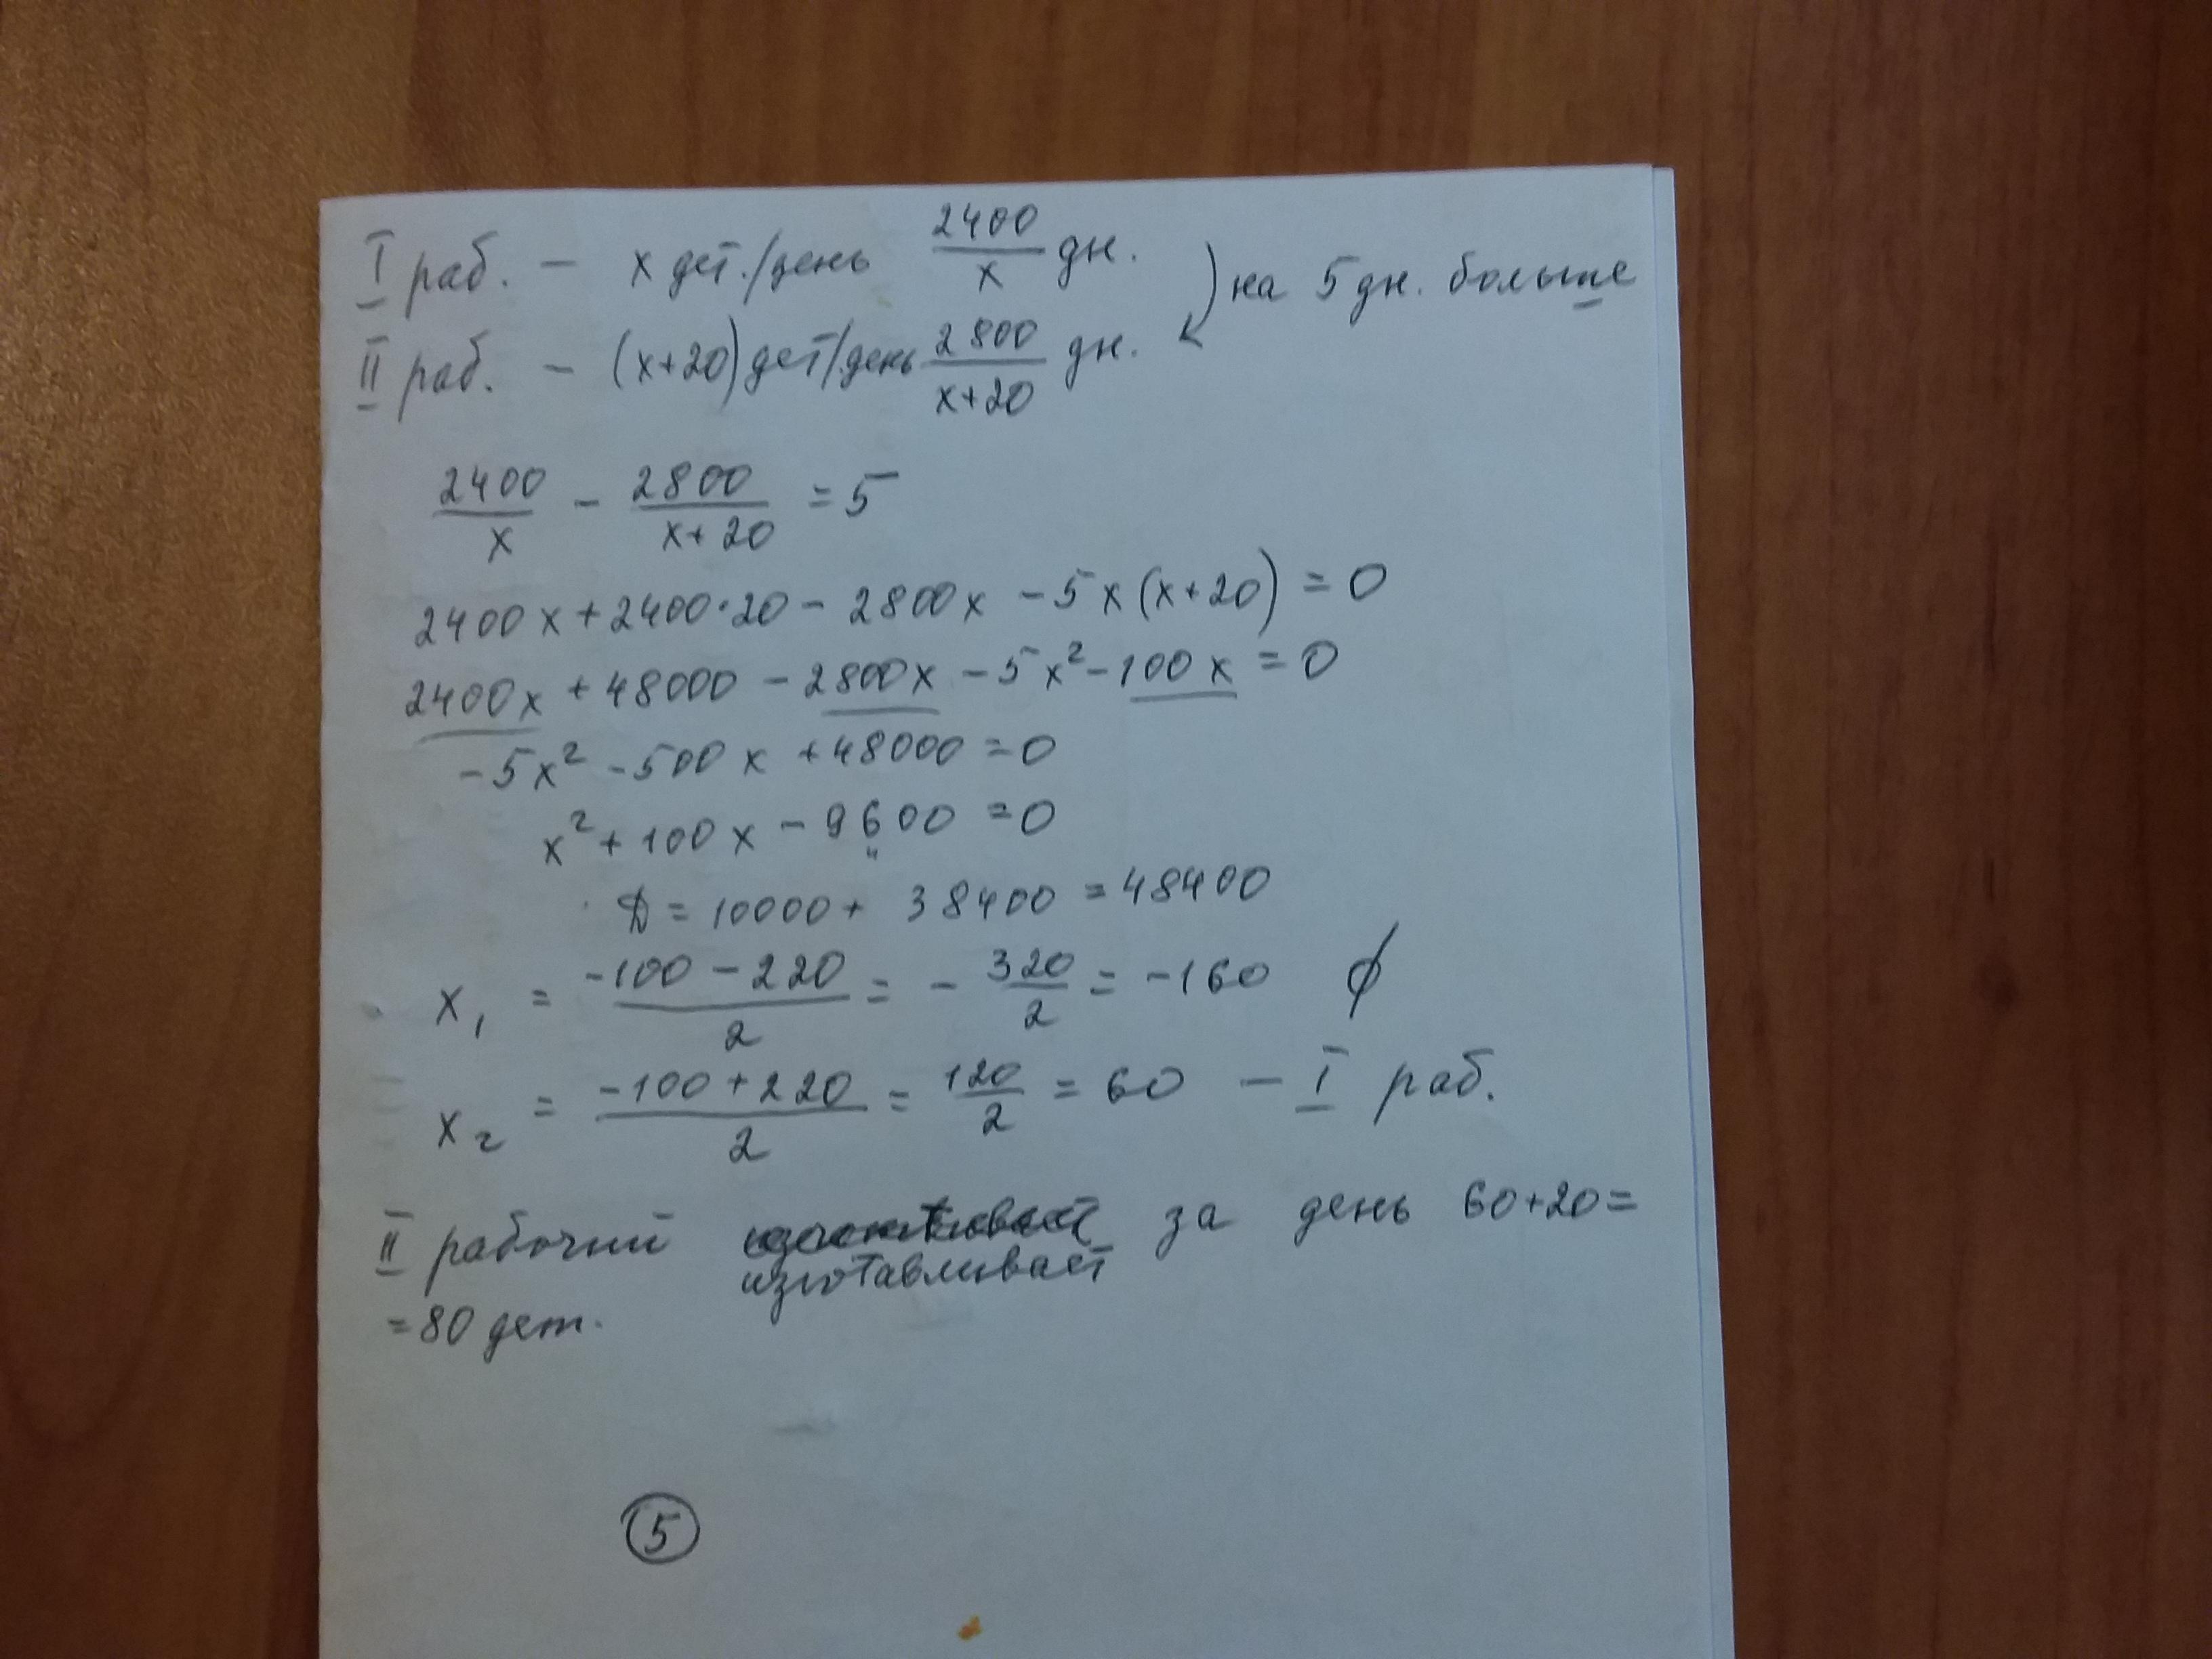 I раб. – x дет./день 2400/x дн. ) на 5 дн. больше
II раб. – (x+20) дет/день 2800/(x+20) дн.
2400/x - 2800/(x+20) = 5
2400x + 2400·20 - 2800x - 5x(x+20) = 0
2400x + 48000 - 2800x - 5x² - 100x = 0
-5x² - 500x + 48000 = 0
x² + 100x - 9600 = 0
D = 10000 + 38400 = 48400
x₁ = (-100 - 220)/2 = - 320/2 = -160 ∅
x₂ = (-100 + 220)/2 = 120/2 = 60 – I раб.
II рабочий за день 60+20=
изготавливает
= 80 дет.
5